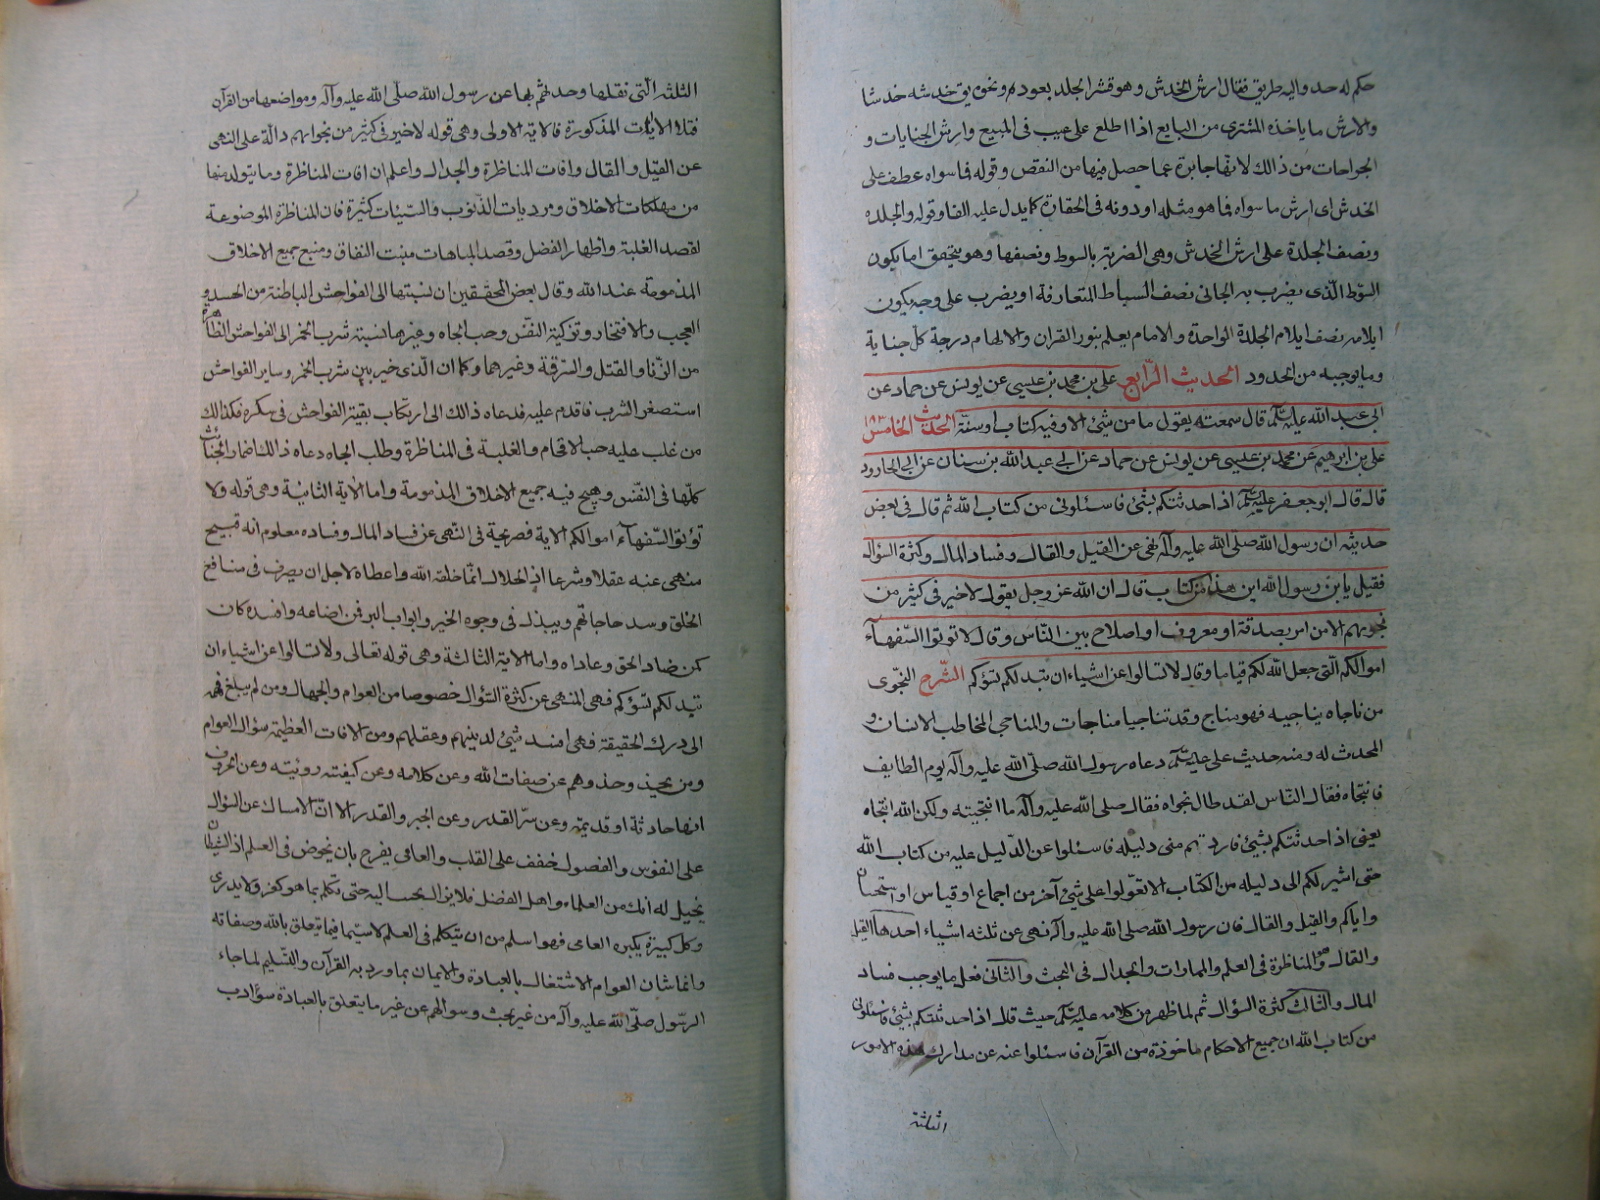 حكم له حد واليه طريق فقال ارش الخدش وهو قشر الجلد بعود ونحوه يق خدشه خدشا
والارش ما ياخذه المشترى من البايع اذا اطلع على عيب فى المبيع وارش الجنايات و
الجراحات من ذالك لانها جابرة عما حصل فيها من النقص وقوله فما سواه عطف على
الخدش اى ارش ما سواه فما هو مثله او دونه فى الحقارة كما يدل عليه الفا وقوله والجلدة
ونصف الجلدة على ارش الخدش وهى الضربة بالسوط ونصفها وهو يتحقق اما بكون
السوط الذى يضرب به الجانى نصف السياط المتعارفة او يضرب على وجه يكون
ايلامه نصف ايلام الجلدة الواحدة والامام يعلم بنور القران والالهام درجة كل جناية
وما يوجبه من الحدود الحديث الرابع على بن محمد بن عيسى عن يونس عن حماد عن
ابى عبد الله عليه السلم قال سمعته يقول ما من شئ الا وفيه كتاب او سنة الحديث الخامس
على بن ابرهيم عن محمد بن عيسى عن يونس عن حماد عن عبد الله بن سنان عن ابى الجارود
قال قال ابو جعفر عليه السلم اذا حدثتكم بشئ فاسئلونى من كتاب الله ثم قال فى بعض
حديثه ان رسول الله صلى الله عليه وآله نهى عن القيل والقال وفساد المال وكثرة السؤال
فقيل يا بن رسول الله اين هذا من كتاب قال ان الله عز وجل يقول لا خير فى كثير من
نجويهم الا من امر بصدقة او معروف او اصلاح بين الناس وقال لا تؤتوا السفهآء
اموالكم التى جعل الله لكم قياما وقال لا تسالوا عن اشياء ان تبد لكم تسؤكم الشرح النجوى
من ناجاه يناجيه فهو مناج وقد تناجيا مناجات والمناجى المخاطب الانسان و
المحدث له ومنه حديث على عليه السلم دعاه رسول الله صلى الله عليه وآله يوم الطايف
فانتجاه فقال الناس لقد طال نجواه فقال صلى الله عليه وآله ما انتجيته ولكن الله انتجاه
يعنى اذا حدثتكم بشئ فاردتم منى دليله فاسئلوا عن الدليل عليه من كتاب الله
حتى اشير لكم الى دليله من الكتاب الا تعولوا على شئ آخر من اجماع او قياس او استحسان
واياكم والقيل والقال فان رسول الله صلى الله عليه وآله نهى عن ثلثه اشياء احدها القيل
والقال وهو المناظرة فى العلم والممارات والجدال فى البحث والثانى فعل ما يوجب فساد
المال والثالث كثرة السؤال ثم لما ظهر من كلامه عليه السلم حيث قال اذا حدثتكم بشئ فاسئلونى
من كتاب الله ان جميع الاحكام ماخوذة من القرآن فاسئلوا عنه عن مدارك هذه الامور
الثلثة
الثلثه التى نقلها وحدثهم بها عن رسول الله صلى الله عليه وآله ومواضعها من القرآن
فتلا الايات المذكورة فالاية الاولى وهى قوله لا خير فى كثير من نجواهم دالة على النهى
عن القيل والقال وافات المناظرة والجدال واعلم ان افات المناظرة وما يتولد منها
من مهلكات الاخلاق ومرديات الذنوب والسيئات كثيرة فان المناظرة الموضوعة
لقصد الغلبة واظهار الفضل وقصد المباهات منبت النفاق ومنبع جميع الاخلاق
المذمومة عند الله وقال بعض المحققين ان نسبتها الى الفواحش الباطنة من الحسد و
العجب والافتخار وتزكية النفس وحب الجاه وغيرها نسبة شرب الخمر الى الفواحش الظاهرة
من الزنا والقتل والسرقة وغيرهما وكما ان الذى خير بين شرب الخمر وساير الفواحش
استصغر الشرب فاقدم عليه فدعاه ذالك الى ارتكاب بقية الفواحش فى سكره فكذالك
من غلب عليه حب الافحام والغلبة فى المناظرة وطلب الجاه دعاه ذالك اضمار الخبائث
كلها فى النفس وهيج فيه جميع الاخلاق المذمومة واما الاية الثانية وهى قوله ولا
تؤتوا السفهآء اموالكم الاية فصريحة فى النهى عن فساد المال وفساده معلوم انه قبيح
منهى عنه عقلا وشرعا اذ الحلال انما خلقه الله واعطاه لاجل ان يصرف فى منافع
الخلق وسد حاجاتهم ويبذل فى وجوه الخير وابواب البر فمن اضاعه وافسده كان
كمن ضاد الحق وعاداه واما الاية الثالثة وهى قوله تعالى ولا تسالوا عن اشياء ان
تبد لكم تسؤكم فهى المنهى عن كثرة السؤال خصوصا من العوام والجهال ومن لم يبلغ فهمه
الى درك الحقيقة فهى افسد شئ لدينهم وعقلهم ومن الافات العظيمة سؤال العوام
ومن يحذو حذوهم عن صفات الله وعن كلامه وعن كيفية رؤيته وعن الحروف
انها حادثة او قديمة وعن سر القدر وعن الجبر والقدر الا ان الامساك عن السؤال
على النفوس والفضول خفف على القلب والعامى يفرح بان يخوض فى العلم اذ الشيطان
يخيل له انك من العلماء واهل الفضل فلا يزال يحسب اليه حتى تكلم بما هو كفر ولا يدرى
وكل كبيرة يكبره العامى فهو اسلم من ان يتكلم فى العلم لا سيما فيما يتعلق بالله وصفاته
وانما شان العوام الاشتغال بالعبادة والايمان بما ورد به القرآن والتسليم لما جاء
الرسول صلى الله عليه وآله من غير بحث وسوالهم عن غير ما يتعلق بالعبادة سؤ ادب